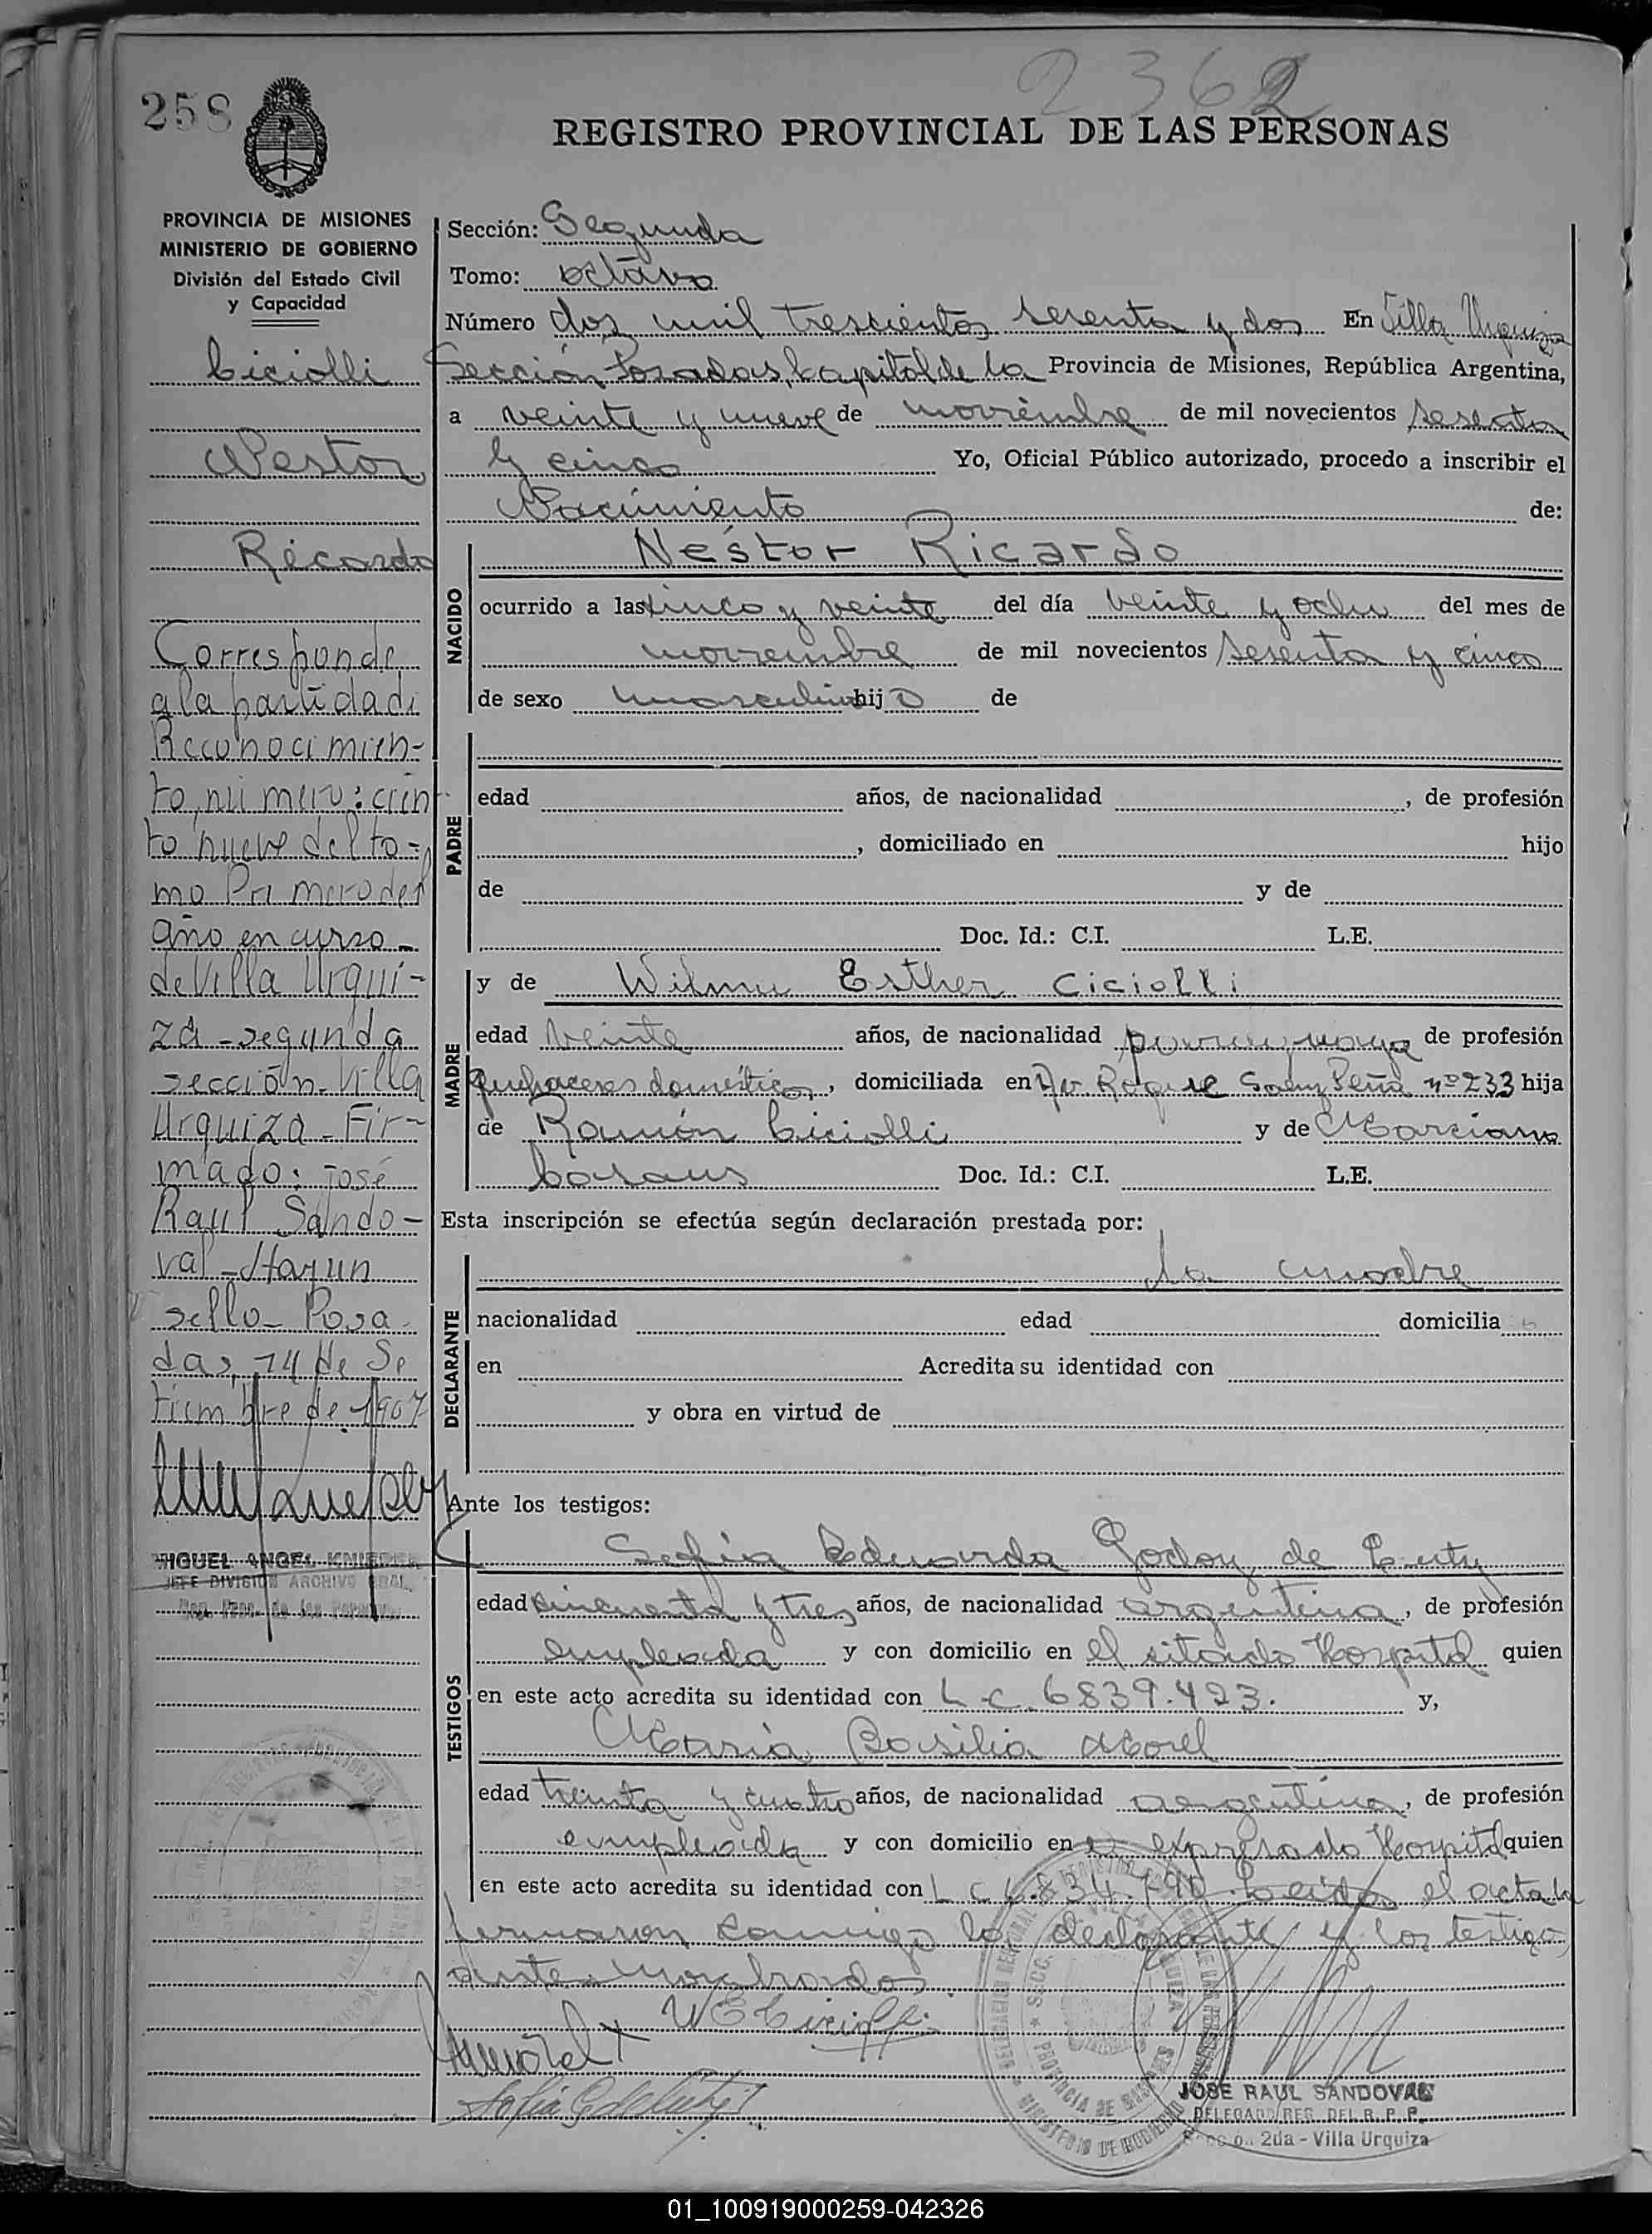 2362
258
REGISTRO PROVINCIAL DE LAS PERSONAS
PROVINCIA DE MISIONES
MINISTERIO DE GOBIERNO
División del Estado Civil
y Capacidad
Ciciolli
Nestor
Ricardo
Corresponde
a la partida de
Reconocimien-
to, numero: cien-
to nueve del to-
mo Primero del
año en curso -
de Villa Urqui-
za - segunda
sección - Villa
Urquiza - Fir-
mado: José
Raul Sando-
val - Hay un
sello - Posa-
das, 14 de Se
tiembre de 1967
MIGUEL ANGEL
JEFE DIVISION ARCHIVO GRAL.
Reg. Prov. de las Personas
Sección: Segunda
Tomo: octavo
Número dos mil trescientos sesenta y dos En Villa Urquiza
Sección Posadas, Capital de la Provincia de Misiones, República Argentina,
a veinte y nueve de noviembre de mil novecientos sesenta
y cinco Yo, Oficial Público autorizado, procedo a inscribir el
Nacimiento de:
NACIDO
Néstor Ricardo
ocurrido a las cinco y veinte del día veinte y ocho del mes de
noviembre de mil novecientos sesenta y cinco
de sexo masculino hijo de
PADRE
edad años, de nacionalidad , de profesión
, domiciliado en hijo
de y de
Doc. Id.: C.I. L.E.
MADRE
y de Wilma Esther Ciciolli
edad veinte años, de nacionalidad paraguaya de profesión
quehaceres domésticos, domiciliada en Av. Roque Saenz Peña nº 233 hija
de Ramón Ciciolli y de Marciana
Doc. Id.: C.I. L.E.
Esta inscripción se efectúa según declaración prestada por:
DECLARANTE
la madre
nacionalidad edad domicilia
en Acredita su identidad con
y obra en virtud de
Ante los testigos:
TESTIGOS
Sofia Eduarda Godoy de
edad cincuenta y tres años, de nacionalidad argentina, de profesión
empleada y con domicilio en el sitado Hospital quien
en este acto acredita su identidad con L.C. 6839.423. y,
Maria Basilia Morel
edad treinta y cuatro años, de nacionalidad argentina, de profesión
empleada y con domicilio en el expresado Hospital quien
en este acto acredita su identidad con L.C. Leida el acta la
firmaron conmigo la declarante y los testigos
antes nombrados
W E Ciciolli
JOSE RAUL SANDOVAL
DELEGADO REG. DEL R. P. P.
Sección 2da - Villa Urquiza
01_100919000259-042326